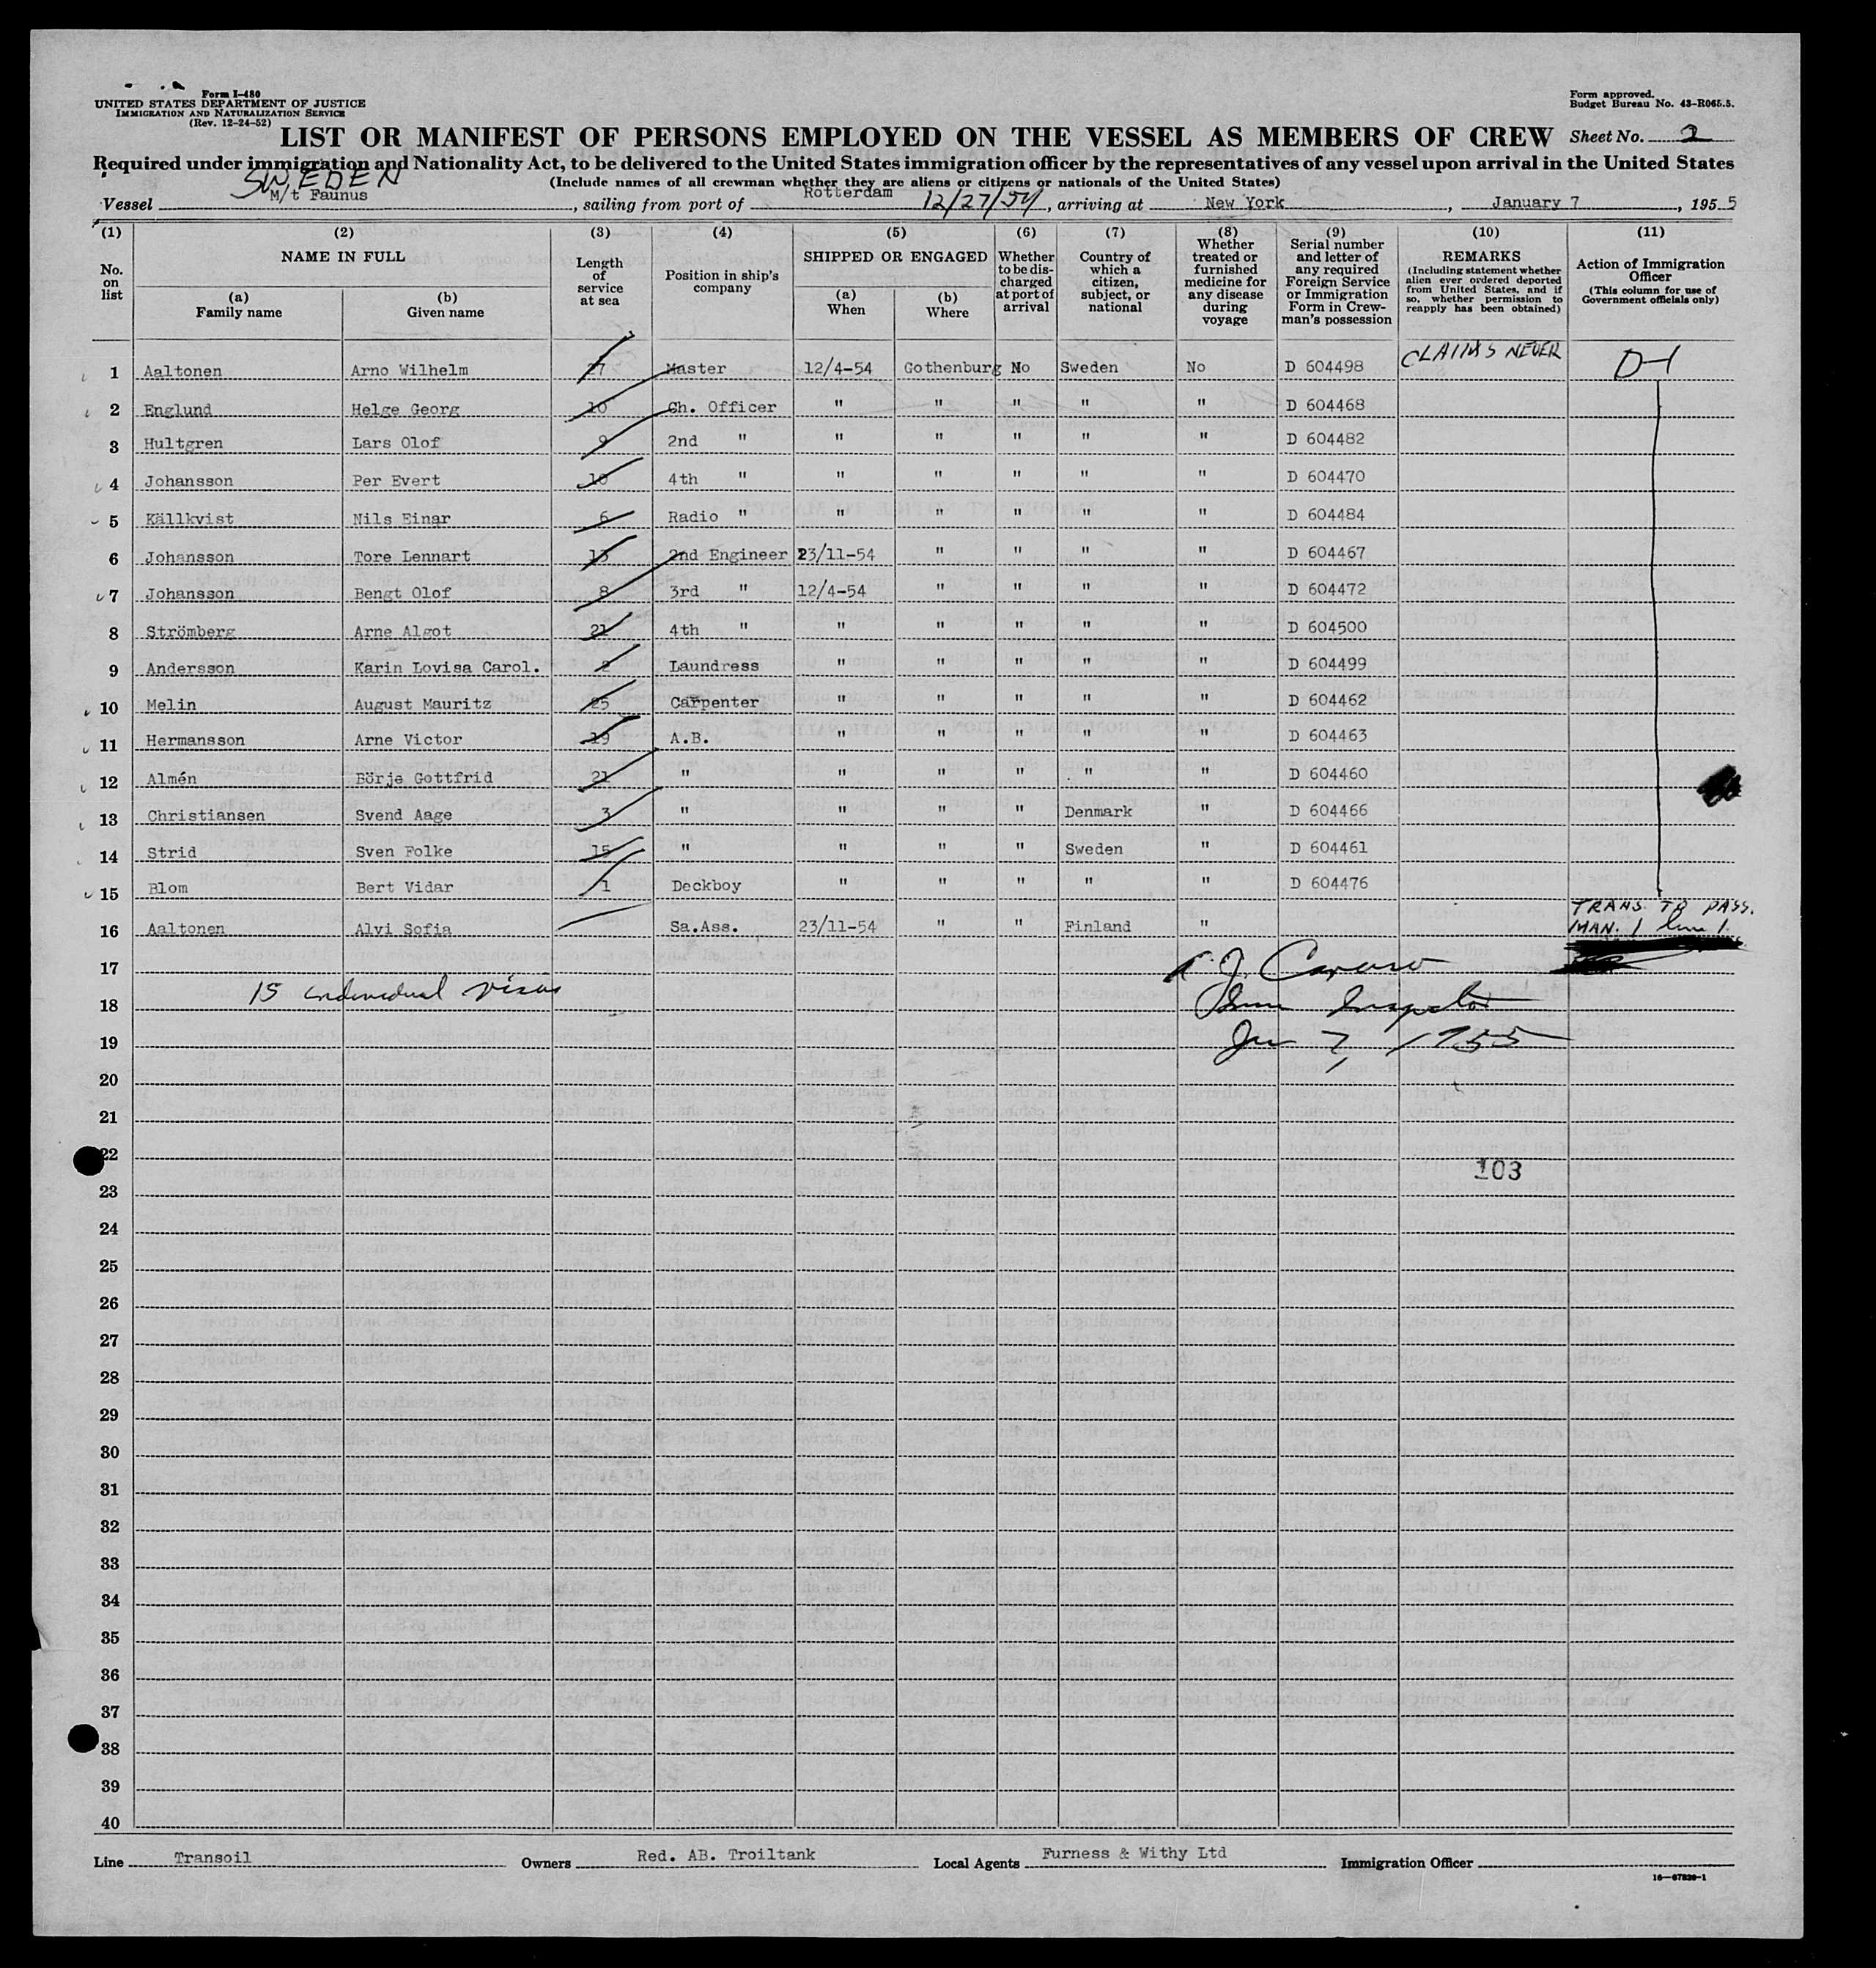 Form I-480
UNITED STATES DEPARTMENT OF JUSTICE
IMMIGRATION AND NATURALIZATION SERVICE
(Rev. 12-24-52)
Form approved.
Budget Bureau No. 43-R065.5.
LIST OR MANIFEST OF PERSONS EMPLOYED ON THE VESSEL AS MEMBERS OF CREW Sheet No. 2
Required under immigration and Nationality Act, to be delivered to the United States immigration officer by the representatives of any vessel upon arrival in the United States
(Include names of all crewman whether they are aliens or citizens or nationals of the United States)
SWEDEN
Vessel M/t Faunus, sailing from port of Rotterdam 12/27/54, arriving at New York, January 7, 1955
(1) (2) (3) (4) (5) (6) (7) (8) (9) (10) (11)
No. on list
NAME IN FULL
(a) Family name
(b) Given name
Length of service at sea
Position in ship's company
SHIPPED OR ENGAGED
(a) When
(b) Where
Whether to be discharged at port of arrival
Country of which a citizen, subject, or national
Whether treated or furnished medicine for any disease during voyage
Serial number and letter of any required Foreign Service or Immigration Form in Crewman's possession
REMARKS
(Including statement whether alien ever ordered deported from United States, and if so, whether permission to reapply has been obtained)
Action of Immigration Officer
(This column for use of Government officials only)
1 Aaltonen Arno Wilhelm 27 Master 12/4-54 Gothenburg No Sweden No D 604498 CLAIMS NEVER D-1
2 Englund Helge Georg 10 Ch. Officer " " " " " D 604468
3 Hultgren Lars Olof 9 2nd " " " " " " D 604482
4 Johansson Per Evert 10 4th " " " " " " D 604470
5 Källkvist Nils Einar 6 Radio " " " " " " D 604484
6 Johansson Tore Lennart 13 2nd Engineer 23/11-54 " " " " D 604467
7 Johansson Bengt Olof 8 3rd " 12/4-54 " " " " D 604472
8 Strömberg Arne Algot 21 4th " " " " " " D 604500
9 Andersson Karin Lovisa Carol. 2 Laundress " " " " " D 604499
10 Melin August Mauritz 25 Carpenter " " " " " D 604462
11 Hermansson Arne Victor 19 A.B. " " " " " D 604463
12 Almén Börje Gottfrid 21 " " " " " " D 604460
13 Christiansen Svend Aage 3 " " " " Denmark " D 604466
14 Strid Sven Folke 15 " " " " Sweden " D 604461
15 Blom Bert Vidar 1 Deckboy " " " " " D 604476
16 Aaltonen Alvi Sofia Sa.Ass. 23/11-54 " " Finland " TRANS. TO PASS. MAN. 1 line 1.
17
A. J. Caruso
15 individual visas
18
Imm Inspector
19
Jan 7, 1955
20
21
22
103
23
24
25
26
27
28
29
30
31
32
33
34
35
36
37
38
39
40
Line Transoil Owners Red. AB. Troiltank Local Agents Furness & Withy Ltd Immigration Officer
16—67839-1